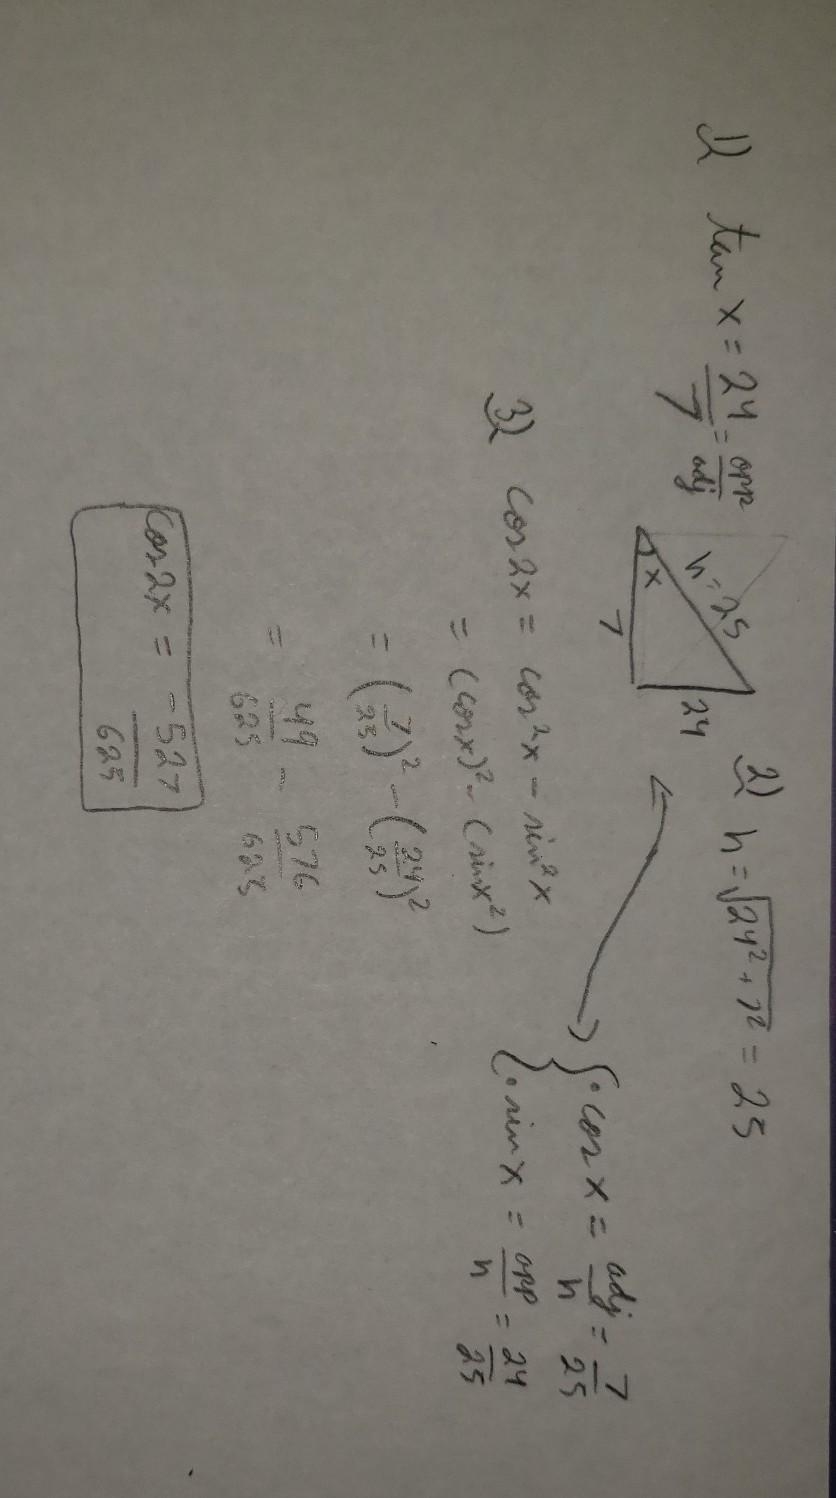 1) tan x = 24/7 = opp/adj
h = 25
x
7
24
2) h = √(24² + 7²) = 25
{ • cos x = adj/h = 7/25
• sin x = opp/h = 24/25
3) cos 2x = cos² x − sin² x
= (cos x)² − (sin x²)
= (7/25)² − (24/25)²
= 49/625 − 576/625
cos 2x = −527/625